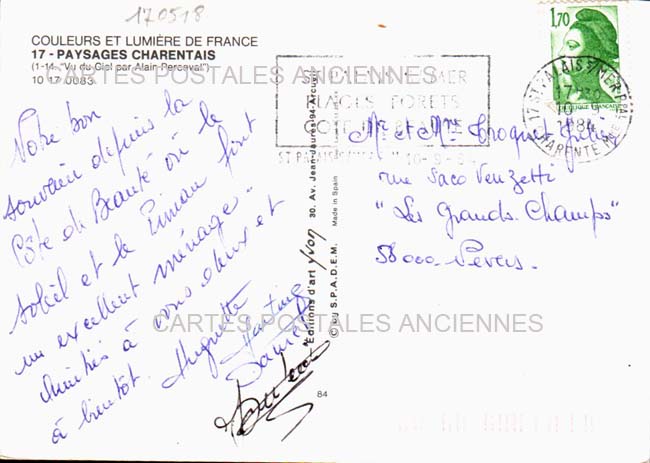 170518
COULEURS ET LUMIÈRE DE FRANCE
17 - PAYSAGES CHARENTAIS
(1-14 "Vu du Ciel par Alain Perceval")
10 17 0083
CARTES POSTALES ANCIENNES
Notre bon
souvenir depuis la
Côte de Beauté où le
soleil et le Pineau font
un excellent ménage
Amitiés à vous deux et
à bientôt. Huguette
Daniel
Editions d'art YVON 30, Av. Jean-Jaurès-94-Arcueil
© BU S.P.A.D.E.M. Made in Spain
84
1,70
REPUBLIQUE FRANÇAISE
17 ST PALAIS S/MER PAL
1984
CHARENTE
ST PALAIS SUR MER
PLAGES FORETS
COTE DE BEAUTE
Mr et Mme Troquet
rue Saco Venzetti
"Les Grands Champs"
58000 Nevers.
CARTES POSTALES ANCIENNES